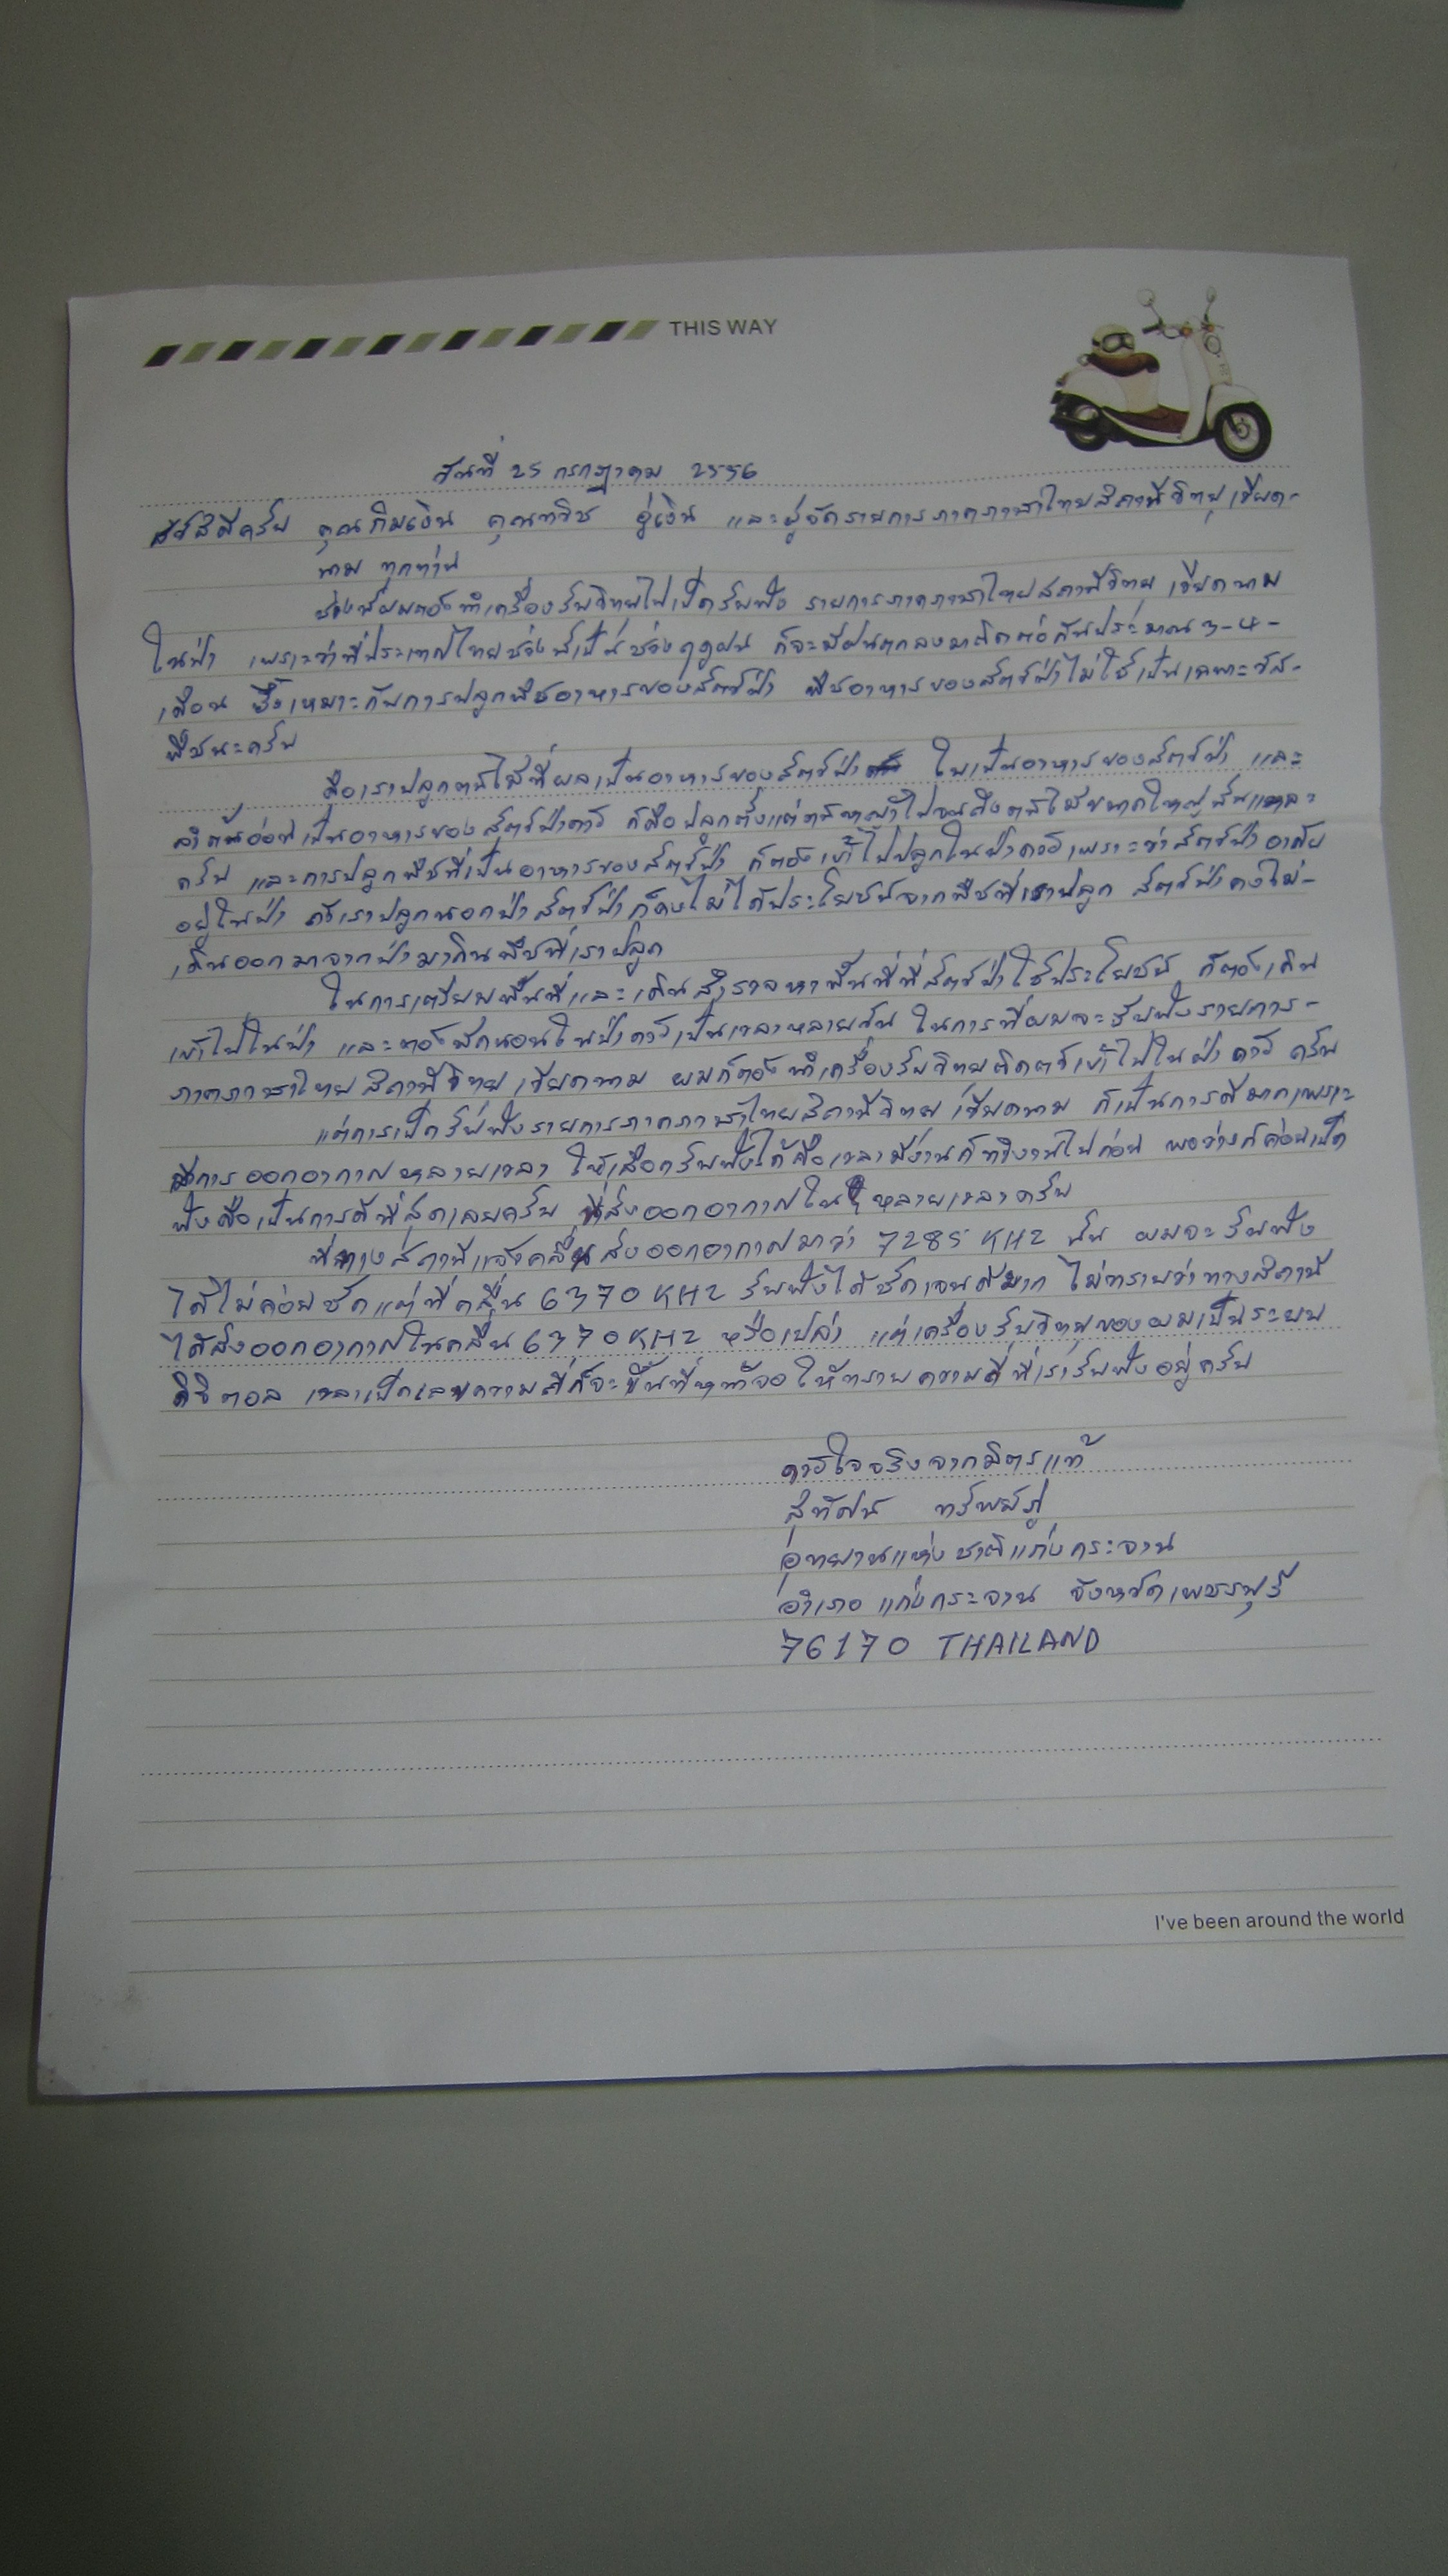 THIS WAY
วันที่ 25 กรกฎาคม 2556
สวัสดีครับ คุณกิมเงิน คุณทวิช อู่เงิน และผู้จัดรายการภาคภาษาไทยสถานีวิทยุเวียด-
นาม ทุกท่าน
ช่วงนี้ผมต้องนำเครื่องรับวิทยุไปเปิดรับฟัง รายการภาคภาษาไทยสถานีวิทยุ เวียดนาม
ในป่า เพราะว่าที่ประเทศไทยช่วงนี้เป็นช่วงฤดูฝน ก็จะมีฝนตกลงมาติดต่อกันประมาณ 3-4-
เดือน ซึ่งเหมาะกับการปลูกพืชอาหารของสัตว์ป่า พืชอาหารของสัตว์ป่าไม่ใช่เป็นเฉพาะวัช-
พืชนะครับ
คือเราปลูกต้นไม้ที่ผลเป็นอาหารของสัตว์ป่า ใบเป็นอาหารของสัตว์ป่า และ
ลำต้นอ่อนเป็นอาหารของสัตว์ป่าด้วย ก็คือปลูกตั้งแต่ต้นหญ้าไปจนถึงต้นไม้ขนาดใหญ่นั่นแหละ
ครับ และการปลูกพืชที่เป็นอาหารของสัตว์ป่า ก็ต้องเข้าไปปลูกในป่าด้วยเพราะว่าสัตว์ป่าอาศัย
อยู่ในป่า ถ้าเราปลูกนอกป่าสัตว์ป่าก็คงไม่ได้ประโยชน์จากพืชที่เราปลูก สัตว์ป่าคงไม่-
เดินออกมาจากป่ามากินพืชที่เราปลูก
ในการเตรียมพื้นที่และเดินสำรวจหาพื้นที่ที่สัตว์ป่าใช้ประโยชน์ ก็ต้องเดิน
เข้าไปในป่า และต้องพักนอนในป่าด้วยเป็นเวลาหลายวัน ในการที่ผมจะรับฟังรายการ-
ภาคภาษาไทยสถานีวิทยุเวียดนาม ผมก็ต้องนำเครื่องรับวิทยุติดตัวเข้าไปในป่า ด้วย ครับ
แต่การเปิดรับฟังรายการภาคภาษาไทยสถานีวิทยุ เวียดนาม ก็เป็นการดีมากเพราะ
มีการออกอากาศหลายเวลา ให้เลือกรับฟังได้คือเวลามีงานก็ทำงานไปก่อน พอว่างก็ค่อยเปิด
ฟังถือเป็นการดีที่สุดเลยครับ ที่ส่งออกอากาศใน หลายเวลาครับ
ที่ทางสถานีแจ้งคลื่นส่งออกอากาศมาว่า 7285 KHZ นั้น ผมจะรับฟัง
ได้ไม่ค่อยชัดแต่ที่คลื่น 6370 KHZ รับฟังได้ชัดเจนดีมาก ไม่ทราบว่าทางสถานี
ได้ส่งออกอากาศในคลื่น 6370 KHZ หรือเปล่า แต่เครื่องรับวิทยุของผมเป็นระบบ
ดิจิตอล เวลาเปิดเลขความถี่ก็จะขึ้นที่หน้าจอ ให้ทราบความถี่ที่เรารับฟังอยู่ครับ
ด้วยใจจริงจากมิตรแท้
สุทัศน์ ทรัพย์ภู่
อุทยานแห่งชาติแก่งกระจาน
อำเภอ แก่งกระจาน จังหวัดเพชรบุรี
76170 THAILAND
I've been around the world